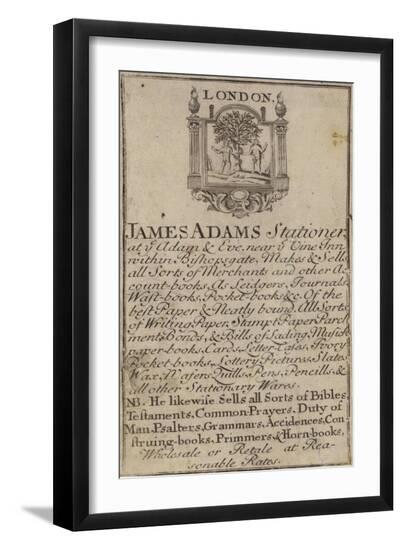 LONDON.
JAMES ADAMS Stationer
at ỹ Adam & Eve, near ỹ Vine Inn
within Bishopsgate, Makes & Sells
all Sorts of Merchants and other Ac
count-books, As Leidgers, Journals
Wast-books, Pocket-books &c. Of the
best Paper & Neatly bound. All Sorts
of Writing Paper, Stampt Paper Parch
ments Bonds, & Bills of Lading, Musick
paper-books, Cards, Letter-Cases, Ivory
Pocket-books, Lottery Pictures, Slates
Wax, Wafers, Quills, Pens, Pencills &
all other Stationary Wares.
NB. He likewise Sells all Sorts of Bibles,
Testaments, Common-Prayers, Duty of
Man, Psalters, Grammars, Accidences, Con-
struing-books, Primmers & Horn-books,
Wholesale or Retale at Rea-
sonable Rates.